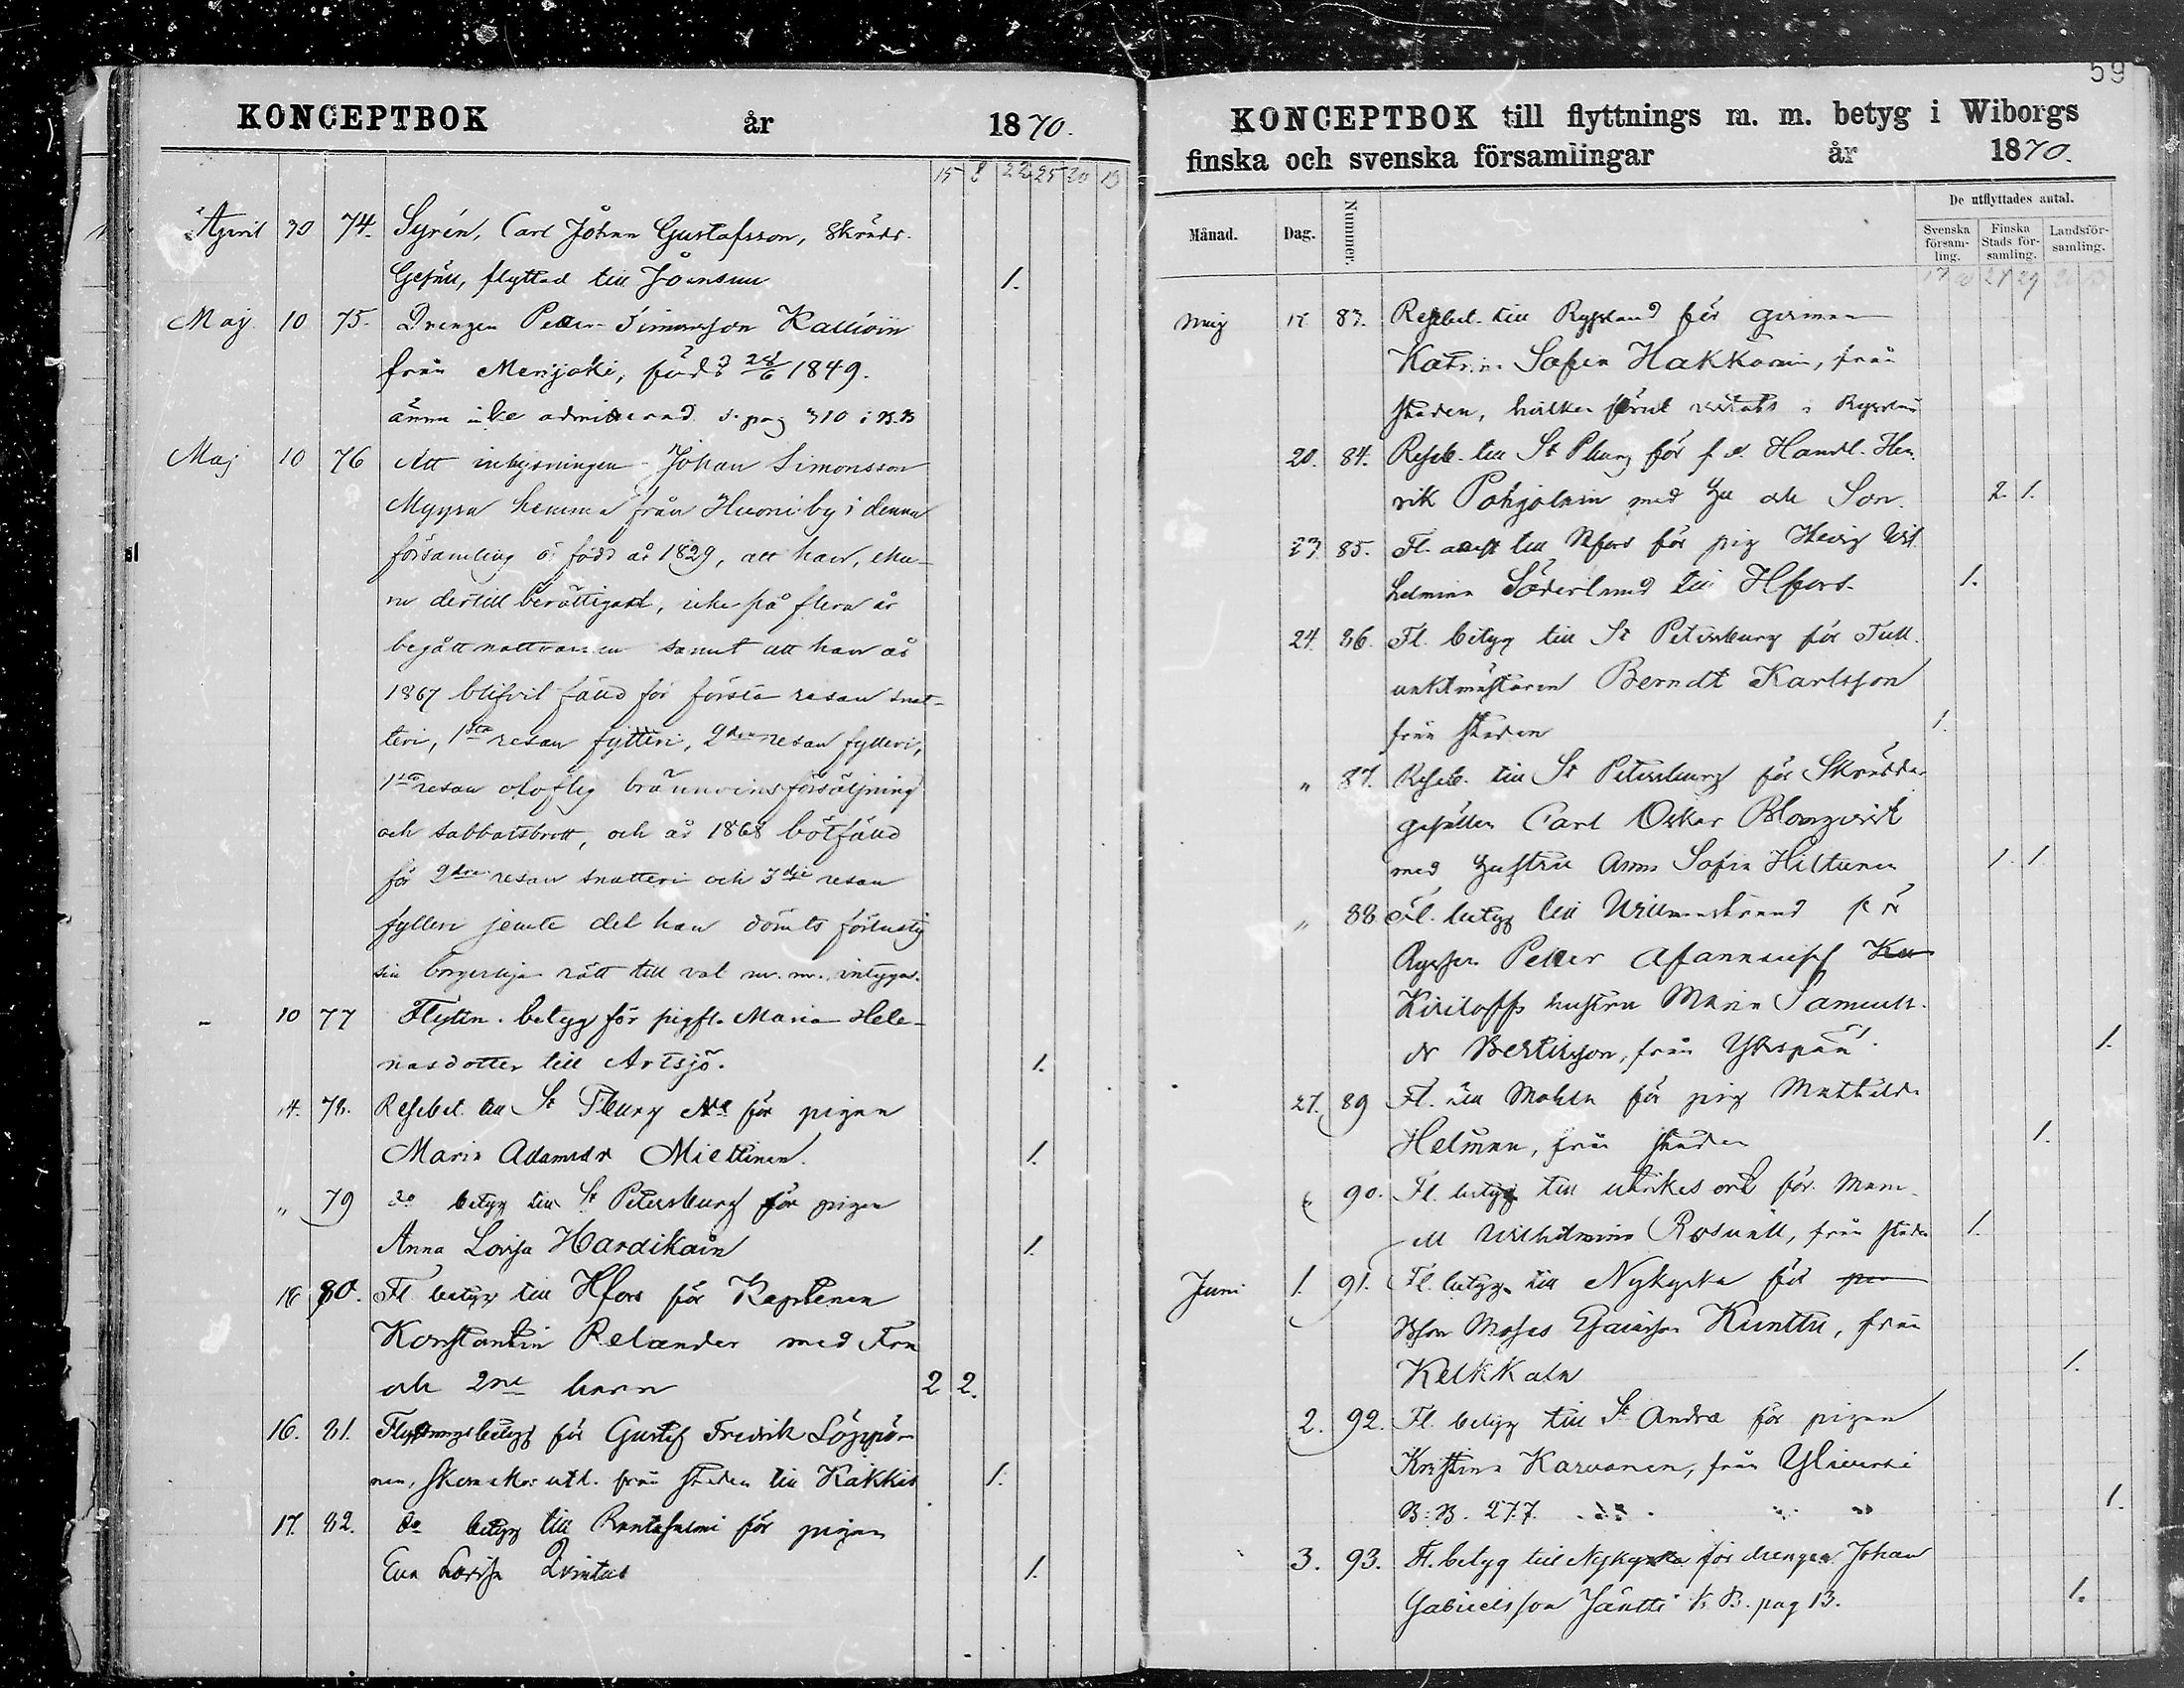 KONCEPTBOK år 1870.
15 8 22 25 20 13
April 30 74. Syrén, Carl Johan Gustafsson, Skrädd.
Gesäll, flyttad till Joensuu 1.
Maj 10 75. Drengen Petter Simonsson Kallioin
från Merijoki, född 28/6 1849.
ännu icke admitterad s. pag 310 i B.B
Maj 10 76 Att inhysningen Johan Simonsson
Myyrä hemma från Huoniby i denna
församling o. född år 1829, att han, ehu-
ru dertill berättigad, icke på flera år
begått nattvarden samt att han år
1867 blifvit fälld för första resan snat-
teri, 1sta resan fylleri, 2dra resan fylleri,
1sta resan oloflig brännvinsförsäljning
och sabbatsbrott, och år 1868 bötfälld
för 2dra resan snatteri och 3dje resan
fylleri jemte det han dömts förlustig
sin borgerliga rätt till val m. m. intygas.
- 10 77 Flyttn. betyg för pigfl. Maria Hele-
nasdotter till Artsjö. 1.
14. 78. Resebet. till St Pburg för pigan
Maria Adamsdr Miettinen. 1.
" 79 do betyg till St Petersburg för pigan
Anna Lovisa Hardikain 1.
16 80. Fl. betyg till Hfors för Kaptenen
Konstantin Relander med Fru
och 2ne barn 2 2.
16. 81. Flyttningsbetyg för Gustaf Fredrik Löppö-
nen, Skomakar från staden till Kakkis 1.
17. 82. do betyg till Rantasalmi för pigan
Eva Lovisa Qvintus 1.
59
KONCEPTBOK till flyttnings m. m. betyg i Wiborgs
finska och svenska församlingar år 1870.
Månad. Dag. Nummer. De utflyttades antal.
Svenska församling. Finska Stads församling. Landsförsamling.
Maj 17 83. Resebet. till Ryssland för
Katrin Sofia Hakkarain, från
staden, hvilken förut vistats i Ryssland
20. 84. Reseb. till St Pburg för f. d. Handl. Hen
rik Pohjolain med hu och Son. 2. 1.
23. 85. Fl. attest till Hfors för pig Hedvig Wil
helmina Söderlund till Hfors. 1.
24. 86. Fl. betyg till St Petersburg för Tull
vaktmästaren Berndt Karlsson
från staden 1.
" 87. Reseb. till St Petersburg för Skräddar
gesällen Carl Oskar Blomqvist
med hustru Anna Sofia Hiltunen 1. 1.
" 88 Fl. betyg till Willmanstrand för
Ryssen Petter Afanasieff
Kiriloffs hustru Maria Samuels
dr Bertilsson, från Ykspää. 1.
27. 89 Fl. till Mohla för pig Mathilda
Helman, från staden 1.
" 90. Fl. betyg till utrikes ort för Mam
sell Wilhelmina Rosvall, från staden 1.
Juni 1. 91. Fl. betyg till Nykyrka för
Bson Moses Esaiasson Kunttu, från
Kelkkala 1.
2. 92. Fl. betyg till St Andræ för pigan
Kristina Karvonen, från Ylivesi
B: B. 277. 1.
3. 93. Fl. betyg till Nykyrka för drengen Johan
Gabrielsson Jäntti K. B. pag 13. 1.